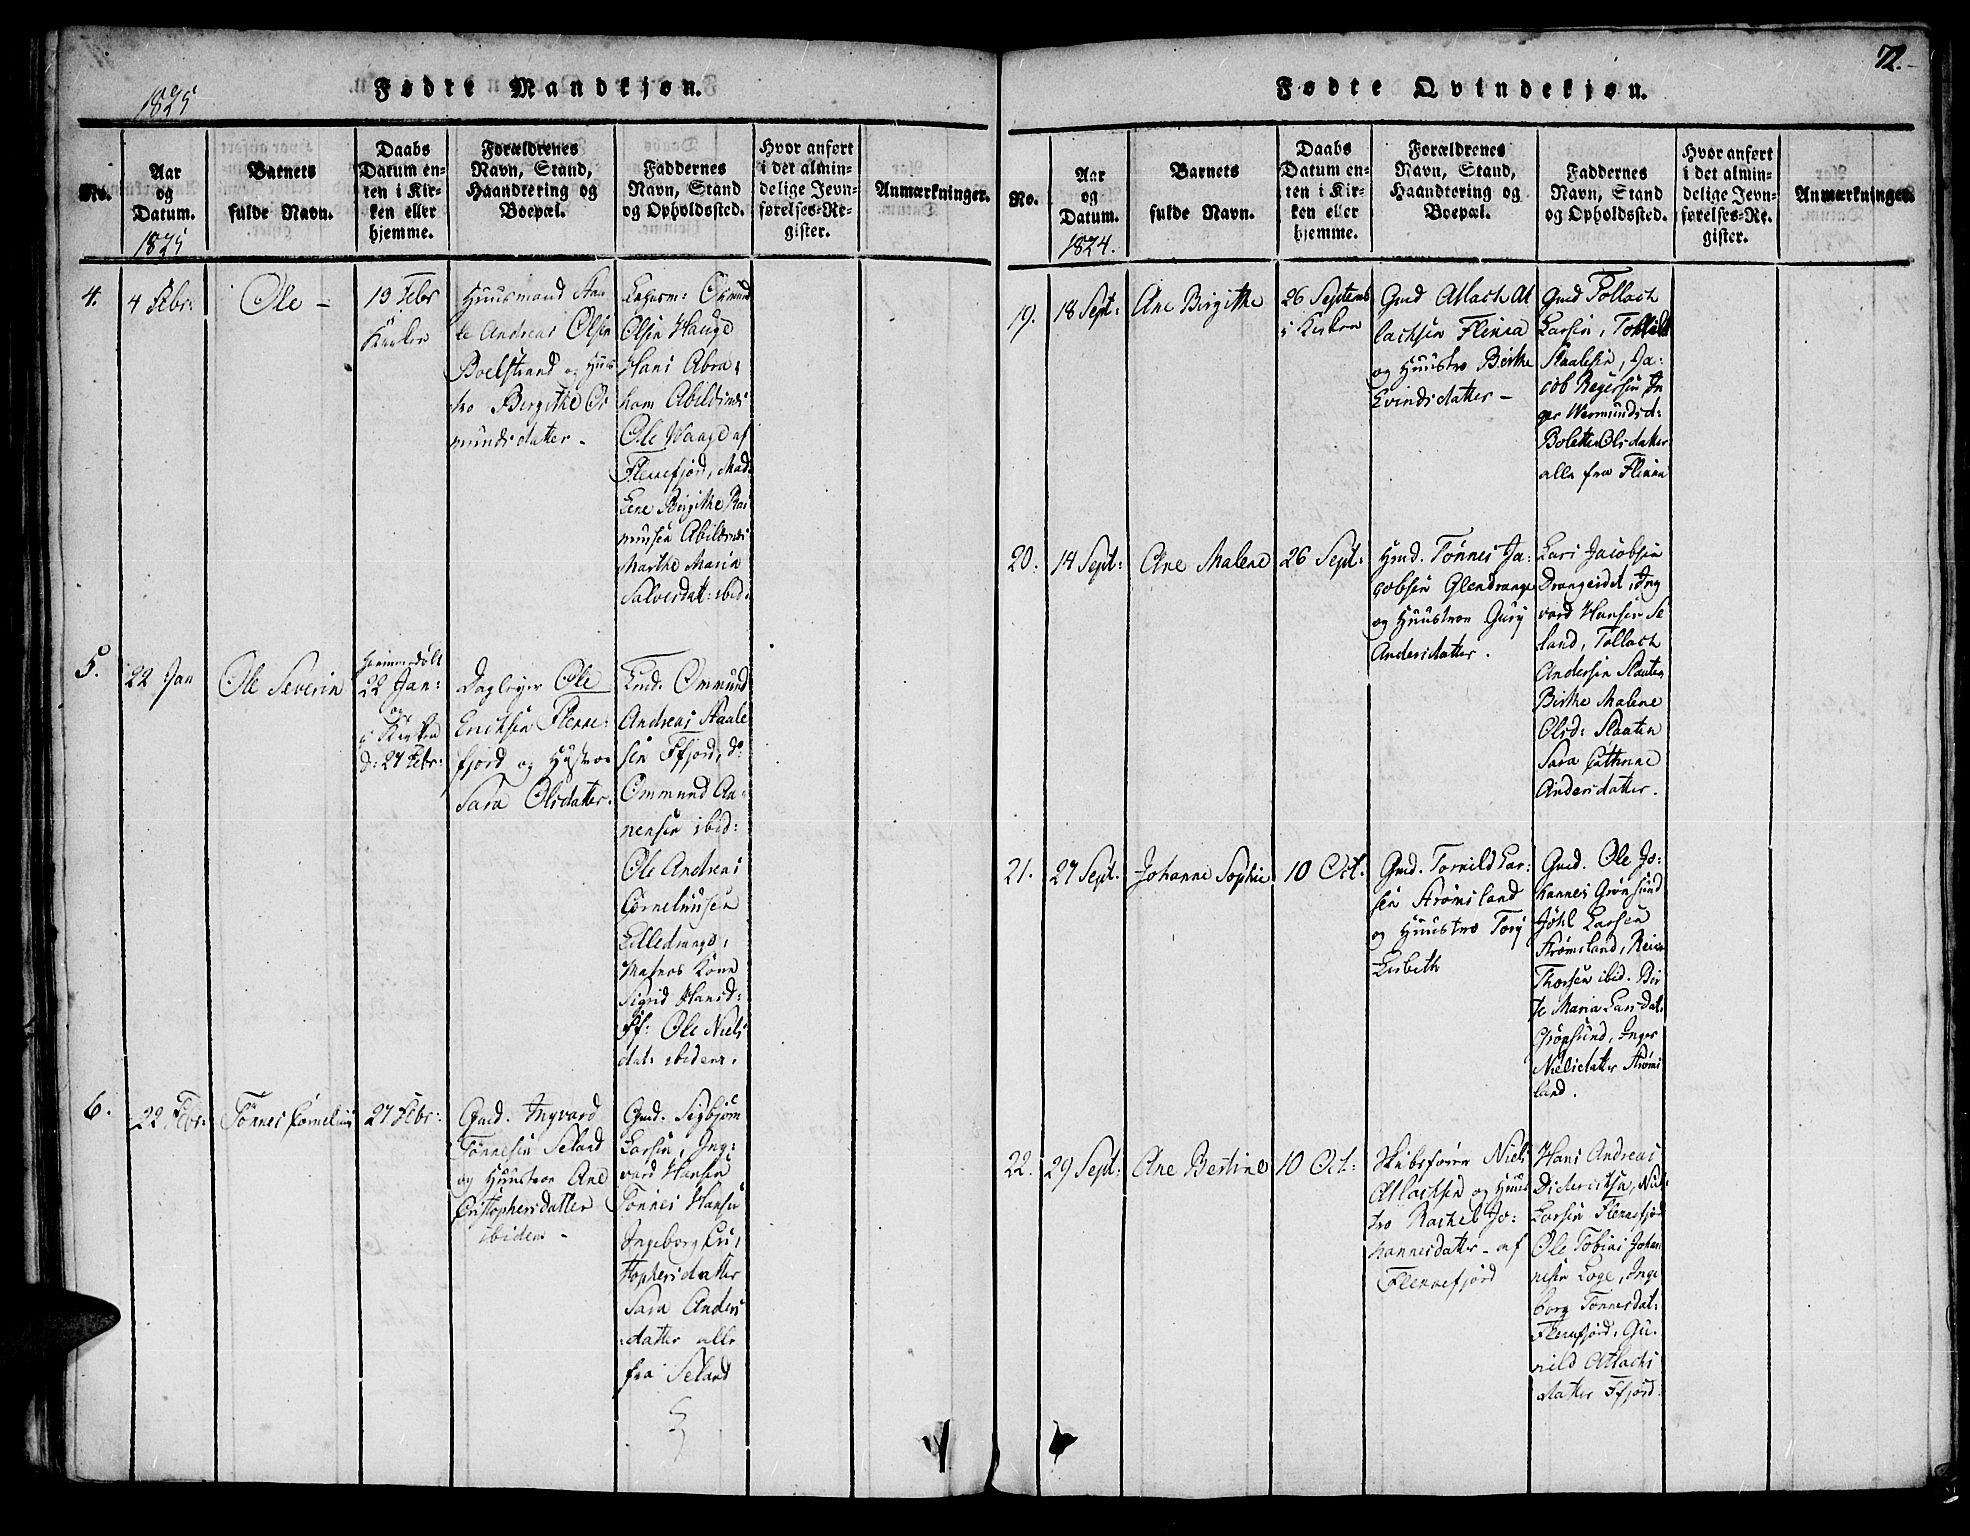 1825
Fødte Mandkjøn.
No.
Aar
og
Datum.
1825
Barnets
fulde Navn.
Daabs
Datum en-
ten i Kir-
ken eller
hjemme.
Forældrenes
Navn, Stand,
Haandtering og
Boepæl.
Faddernes
Navn, Stand
og Opholdssted.
Hvor anført
i det almin-
delige Jevn-
førelses-Re-
gister.
Anmærkninger.
4.
4 Febr:
Ole –
13 Febr
Huusmand
le Andreas Olsen
Boelstrand og Huus
tro Bergithe Os
mundsdatter –
Olsen Hauge
Hans Abra:
ham Abildsnes
Ole Waage af
Flekkefjord, Mad.
Lene Birgithe Ras
mussen Abildsnes
Marthe Maria
Salvesdatt: ibid.
5.
22 Jan
Ole Severin
Hjemmedøbt
22 Jan:
og
i Kirken
d: 27 Febr:
Dagleyer Ole
Ericksen Flekke-
fjord og Hustroe
Sara Olsdatter.
Ommund
Andreas Staale
sen Ffjord, do
Ommund Aa-
nensen ibid:
Ole Andreas
Corneliusen
Lilledrange,
Matros Kone
Sigrid Hansd:
Ff: Ole Niels
dat: ibidem.
6.
22 Febr:
Tønnes Cornelius
27 Febr:
Gmd. Ingvard
Tønnesen Seland
og Huustroe Ane
Cristophersdatter
ibidem –
Gmd. Sigbjørn
Larsen, Ing-
vard Hansen
Tønnes Hansen
Ingeborg Cri:
stophersdatter
Sara Anders
datter alle
fra Seland
72.
Fødte Qvindekjøn.
No.
Aar
og
Datum.
1824.
Barnets
fulde Navn.
Daabs
Datum en-
ten i Kir-
ken eller
hjemme.
Forældrenes
Navn, Stand,
Haandtering og
Boepæl.
Faddernes
Navn, Stand
og Opholdssted.
Hvor anført
i det almin-
delige Jevn-
førelses-Re-
gister.
Anmærkninger.
19.
18 Sept:
Ane Birgithe
26 Septemb
i Kirken
Gmd Atlach At
lachsen Flikka
og Huustro Birthe
Evindsdatter –
Gmd Tollach
Larsen,
Staalesen, Ja-
cob Regersen In
ger Wermundsd:
Bolette Olsdatter
alle fra Flikka
20.
14 Sept:
Ane Malene
26 Sept:
Hmd. Tønnes Ja-
cobsen Glendrange
og Huustroe Gury
Andersdatter.
Lars Jacobsen
Drangeidet, Ing
vard Hansen Se
land, Tollach
Andersen Slaaten
Birthe Malene
Olsd: Slaaten
Sara Cathrine
Andersdatter.
21.
27 Sept.
Johanne Sophie
10 Oct.
Gmd. Tornild Lar-
sen Strømsland
og Huustroe Tory
Lisbeth
Gmd. Ole Jo-
hannes Grønsund
Larsen
Strømsland,
Thorsen ibid. Bir
te Maria Larsdat:
Grønsund, Inger
Nielsdatter Strøms
land.
22.
29 Sept:
Ane Bertine
10 Oct:
Skibsfører Niels
Atlachsen og Huus
tro Rachel Jo-
hannesdatter – af
Flekkefjord
Hans Andreas
Dideriksen, Niels
Larsen Flekkefjo
Ole Tobias Johan
nesen Loge, Inge
borg Tønnesdat:
Flekkefjord, Gu-
nild Atlachs
datter Ffjord.